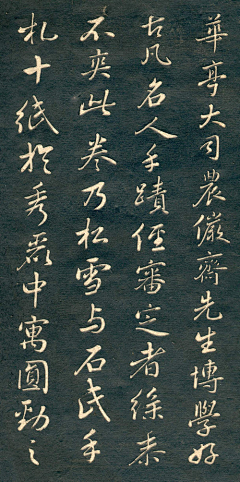 華亭大司農儼齋先生博學好
古凡名人手蹟經審定者徐黍
不爽此卷乃松雪与石民手
札十紙於秀嚴中寓圓勁之